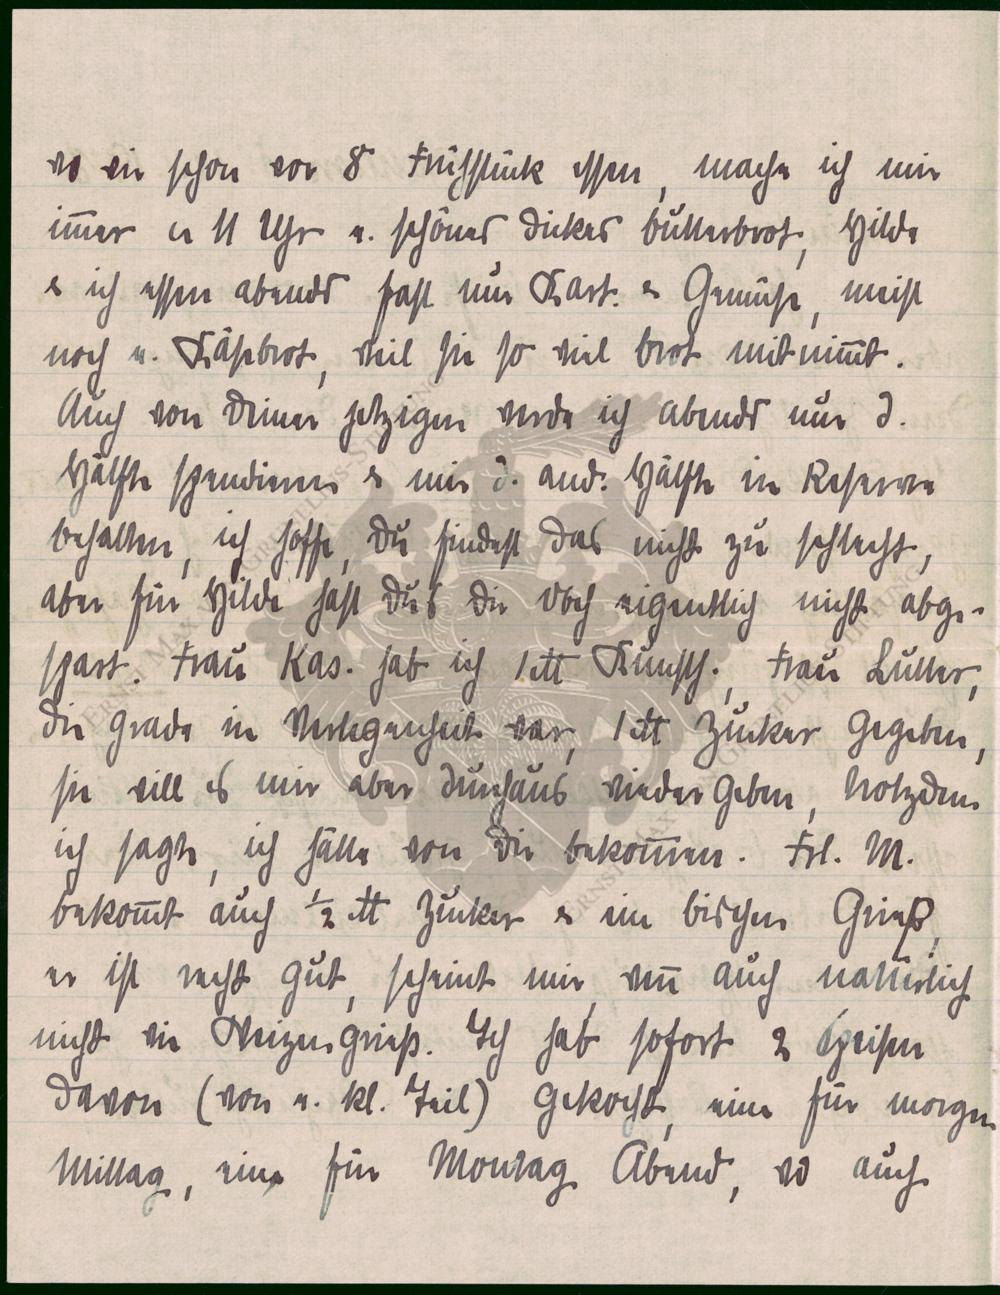 wo wir schon vor 8 Frühstück essen, mache ich mir
im̅er ca 11 Uhr e. schönes dickes Butterbrot, Hilde
& ich essen abends fast nur Kart. & Gemüse, meist
noch e. Käsebrot, weil sie so viel Brot mitnim̅t.
Auch von Deiner jetzigen werde ich abends nur d.
Hälfte spendieren & mir d. and. Hälfte in Reserve
behalten, ich hoffe, Du findest das nicht zu schlecht,
aber für Hilde hast Du's Dir doch eigentlich nicht abge-
spart. Frau Kas. hab ich 1 ℔ Kunsth., Frau Lutter,
die grade in Verlegenheit war, 1 ℔ Zucker gegeben,
sie will es mir aber durchaus wiedergeben, trotzdem
ich sagte, ich hätte von Dir bekom̅en. Frl. M.
bekom̅t auch ½ ℔ Zucker & ein bischen Grieß,
er ist recht gut, scheint mir, wen̅ auch natürlich
nicht wie Weizengrieß. Ich hab sofort 2 Speisen
davon (von e. kl. Teil) gekocht, eine für morgen
Mittag, eine für Montag Abend, wo auch
ERNST MAX VON GRUNELIUS-STIFTUNG
ERNST MAX VON GRUNELIUS-STIFTUNG